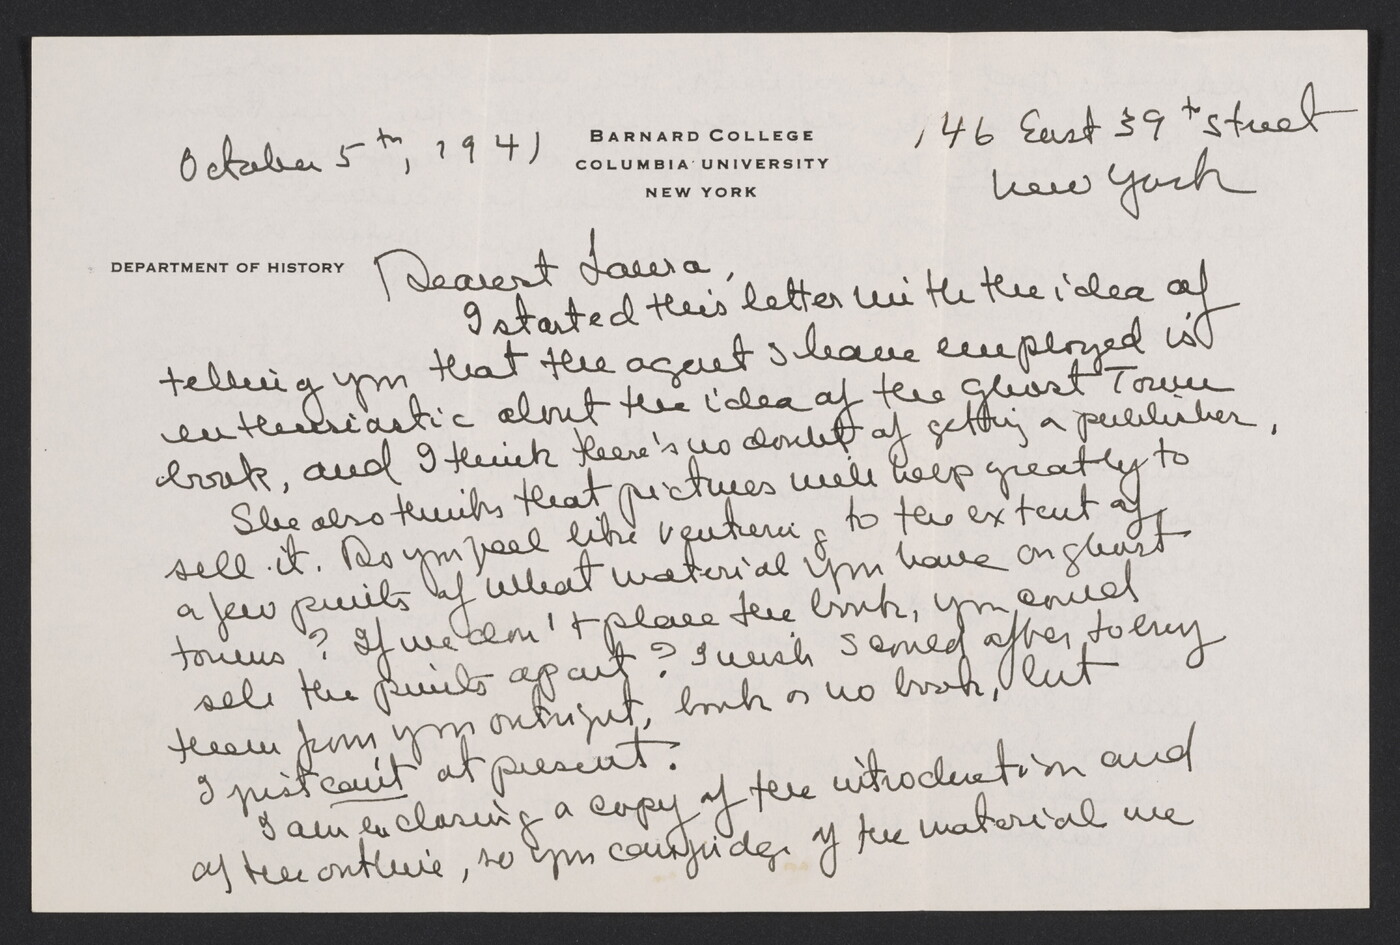 October 5th, 1941
BARNARD COLLEGE
COLUMBIA UNIVERSITY
NEW YORK
146 East 39th Street
New York
DEPARTMENT OF HISTORY
Dearest Laura,
I started this letter with the idea of
telling you that the agent I have employed is
enthusiastic about the idea of the Ghost Town
book, and I think there's no doubt of getting a publisher.
She also thinks that pictures will help greatly to
sell it. Do you feel like venturing to the extent of
a few prints of what material you have on ghost
towns? If we don't place the book, you could
sell the prints apart? I wish I could offer to buy
them from you outright, book or no book, but
I just can't at present.
I am enclosing a copy of the introduction and
of the outline, so you can judge of the material we